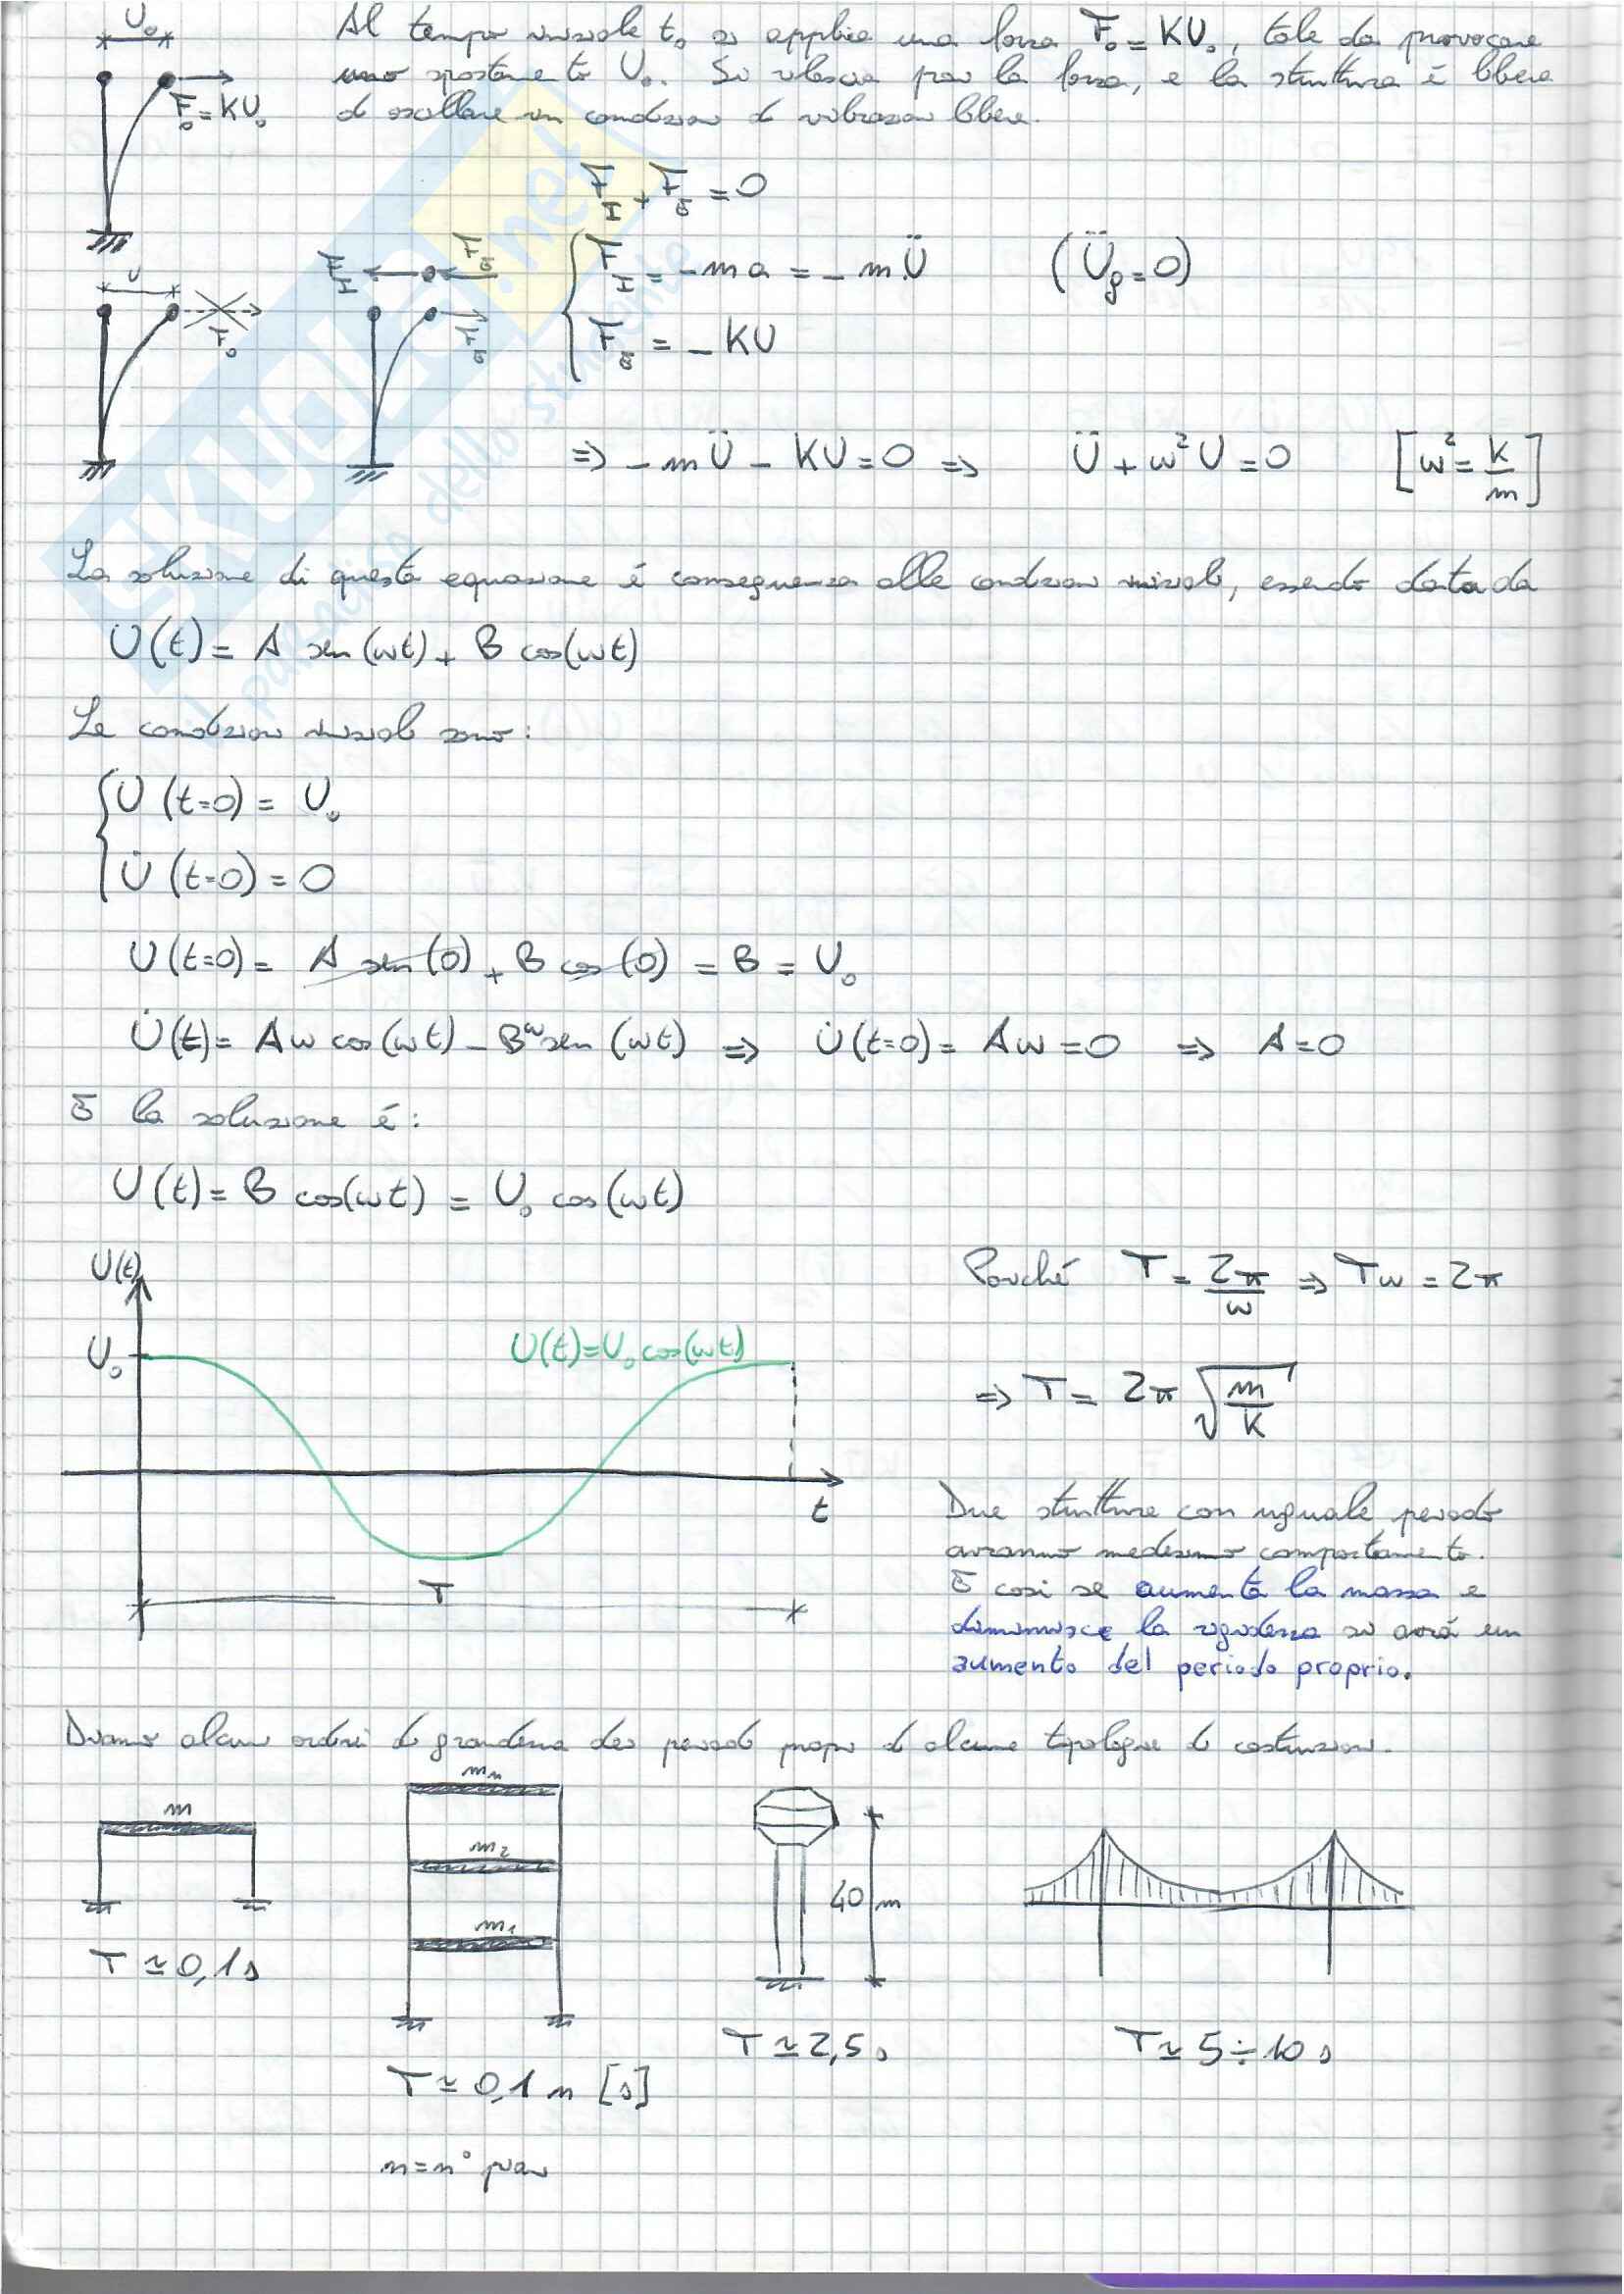 U₀
Al tempo iniziale t₀ si applica una forza F₀ = KU₀, tale da provocare
uno spostamento U₀. Si rilascia poi la forza, e la struttura è libera
F₀ = KU₀
di oscillare in condizioni di vibrazioni libere.
F_H + F_E = 0
F_H = -ma = -mÜ (Ü_g = 0)
U
F_H F_E
F₀ F_E
F_E = -KU
=> -mÜ - KU = 0 => Ü + ω²U = 0 [ω² = k/m]
La soluzione di questa equazione è conseguenza alle condizioni iniziali, essendo data da
U(t) = A sen(ωt) + B cos(ωt)
Le condizioni iniziali sono:
U (t=0) = U₀
U̇ (t=0) = 0
U (t=0) = A sen(0) + B cos(0) = B = U₀
U̇(t) = Aω cos(ωt) - Bω sen(ωt) => U̇(t=0) = Aω = 0 => A = 0
E la soluzione è:
U(t) = B cos(ωt) = U₀ cos(ωt)
U(t)
U₀
U(t)=U₀ cos(ωt)
t
T
Poiché T = 2π/ω => Tω = 2π
=> T = 2π √(m/k)
Due strutture con uguale periodo
avranno medesimo comportamento.
E così se aumenta la massa e
diminuisce la rigidezza si avrà un
aumento del periodo proprio.
Diamo alcuni ordini di grandezza dei periodi propri di alcune tipologie di costruzioni.
m
T ≃ 0,1 s
mₙ
m₂
m₁
T ≃ 0,1 n [s]
n = n° piani
40 m
T ≃ 2,5 s
T ≃ 5 ÷ 10 s
SKUOLA.net
il paradiso dello studente